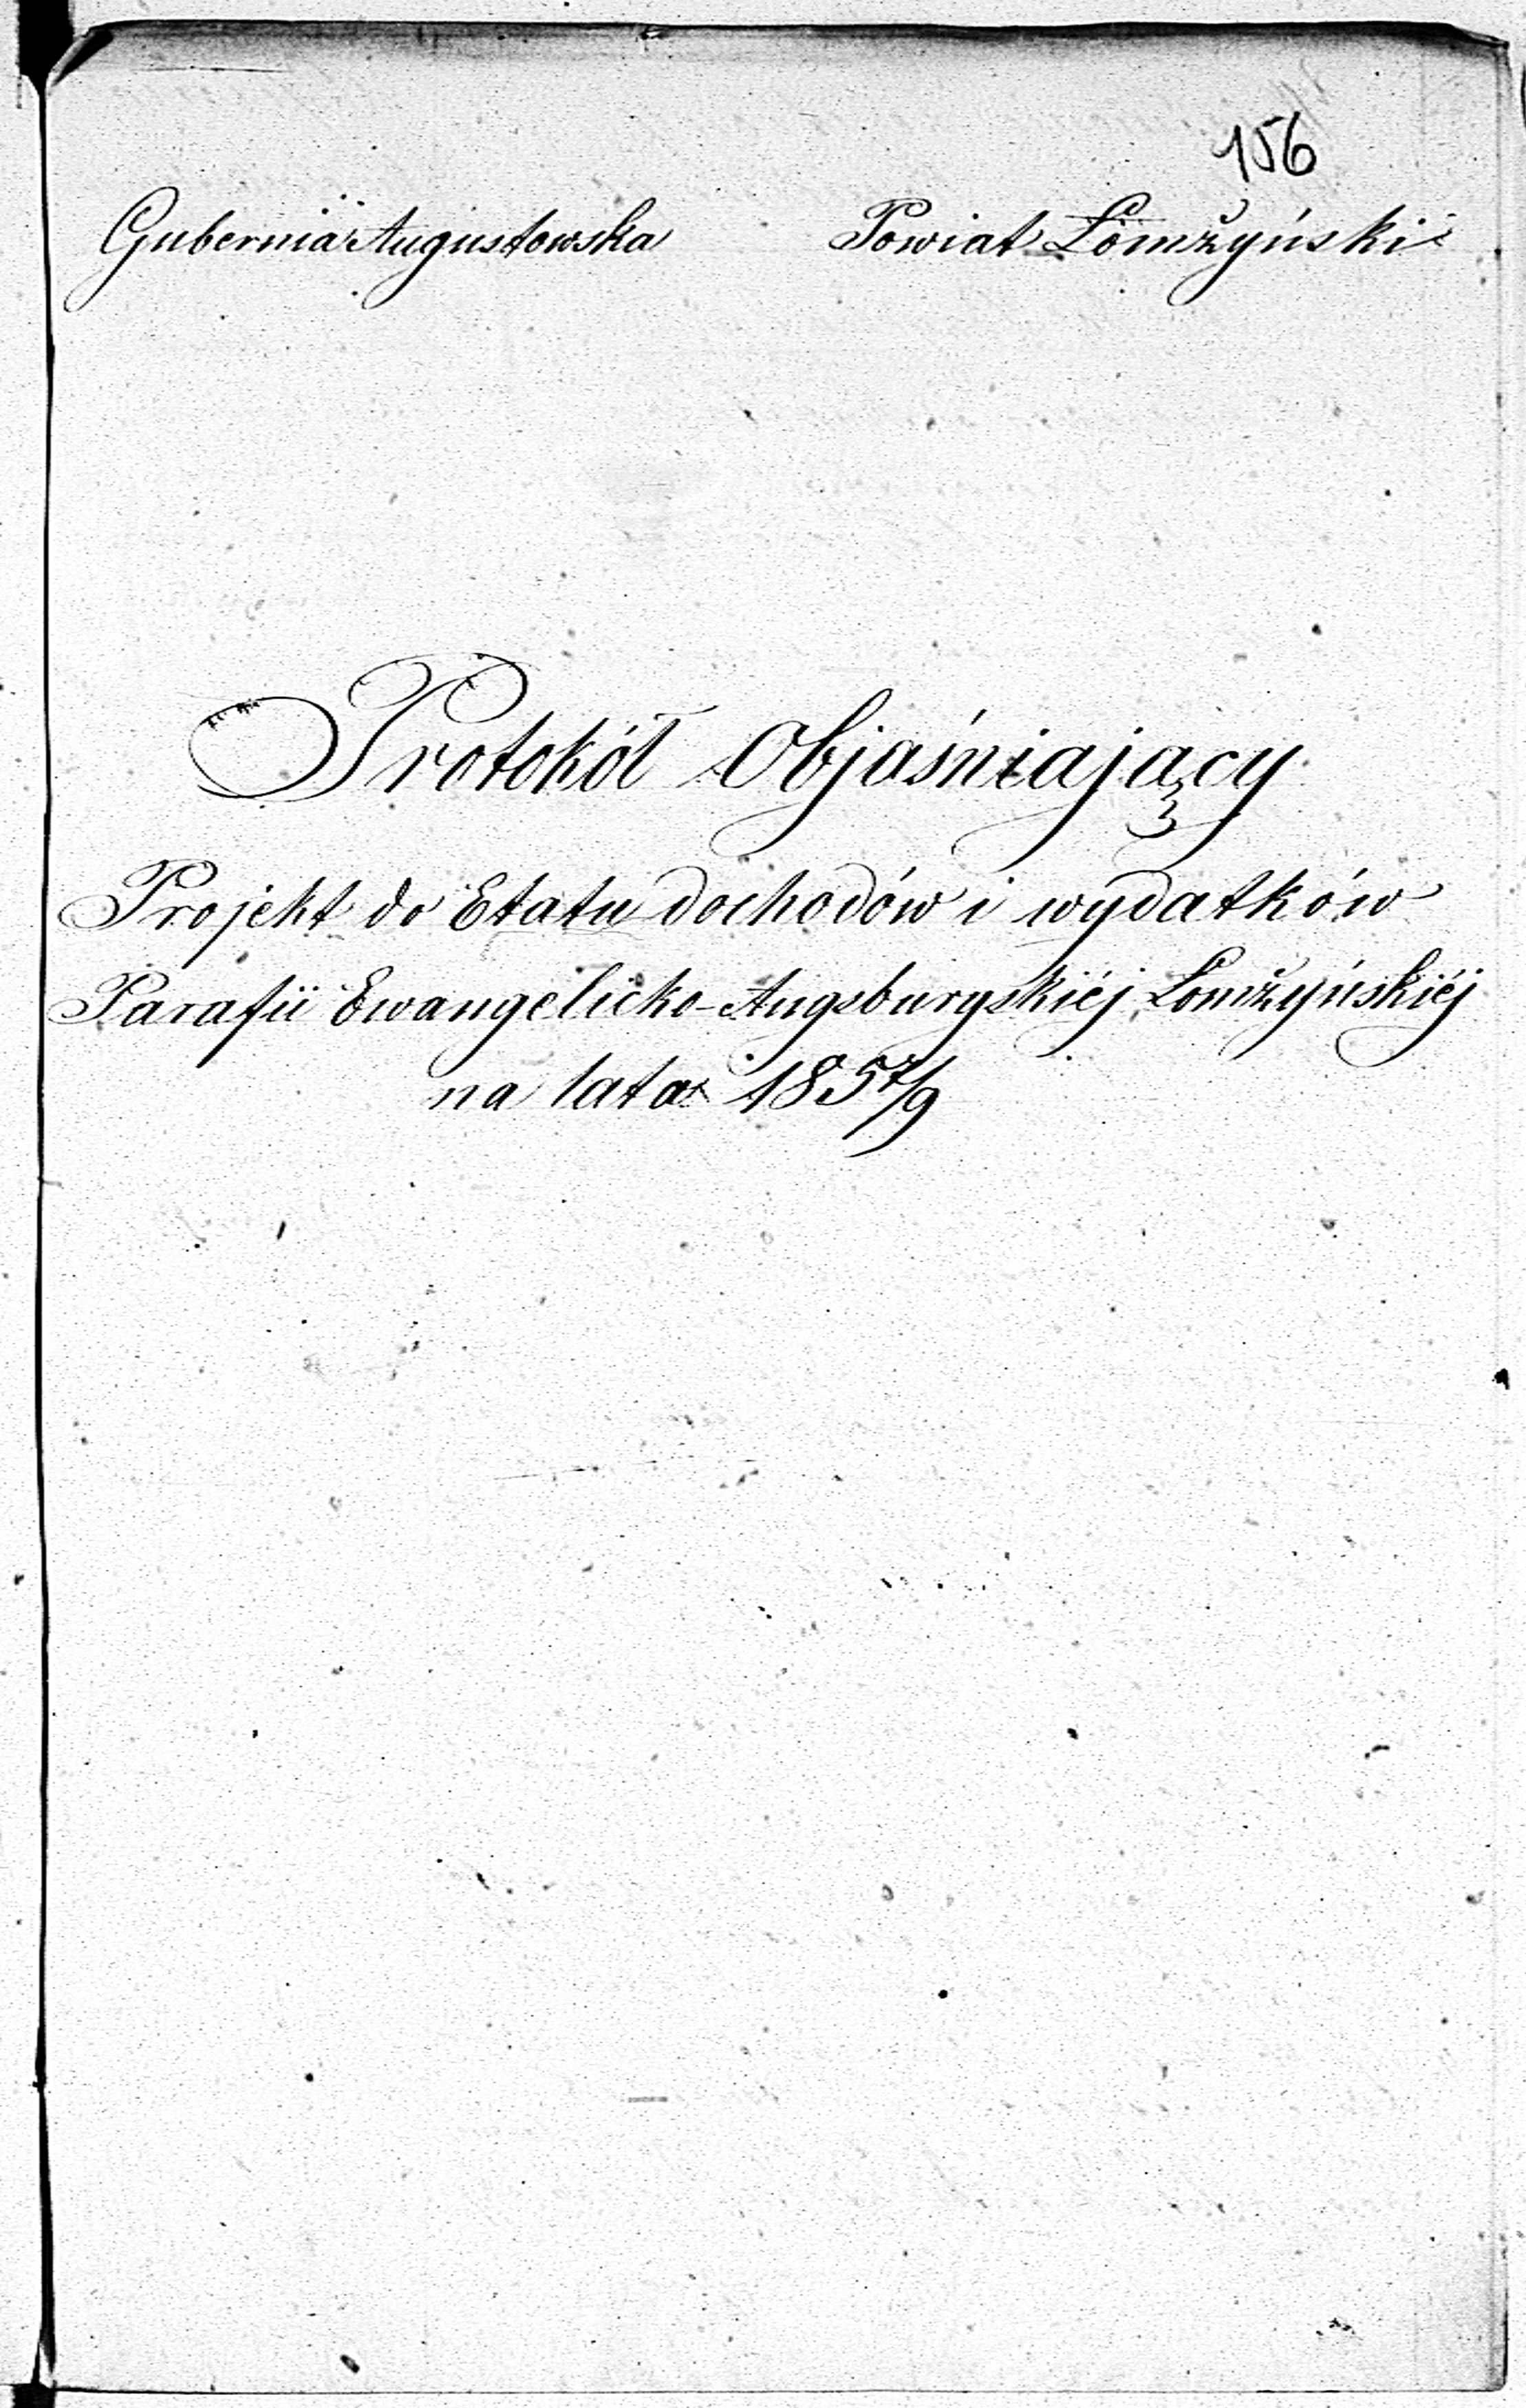 156
Gubernia Augustowska Powiat Łomżyński
Protokół Objaśniający
Projekt do Etatu dochodów i wydatków
Parafii Ewangelicko-Augsburgskiéj Łomżyńskiéj
na lata 1857/9